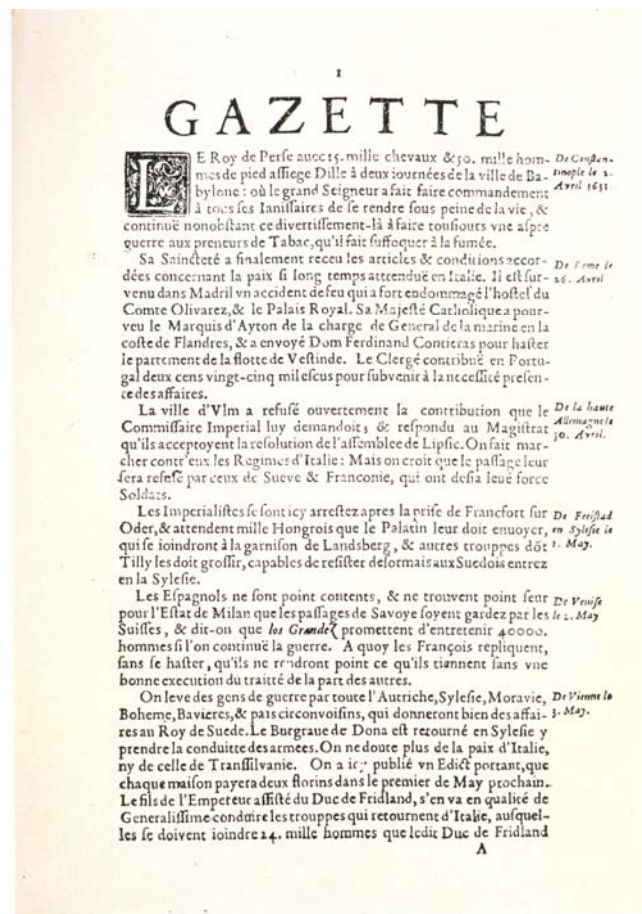 1
GAZETTE
LE Roy de Perse auec 15. mille chevaux &50. mille hom-
mes de pied assiege Dille à deux iournées de la ville de Ba-
bylone : où le grand Seigneur a fait faire commandement
à tous ses Ianissaires de se rendre sous peine de la vie, &
continuë nonobstant ce divertissement-là à faire tousiours vne aspre
guerre aux preneurs de Tabac, qu'il fait suffoquer à la fumée.
De Constan-
tinople le 2.
Avril 1631
Sa Saincteté a finalement receu les articles & conditions accor-
dées concernant la paix si long temps attenduë en Italie. Il est sur-
venu dans Madril vn accident de feu qui a fort endommagé l'hostel du
Comte Olivarez, & le Palais Royal. Sa Majesté Catholique a pour-
veu le Marquis d'Ayton de la charge de General de la marine en la
coste de Flandres, & a envoyé Dom Ferdinand Contieras pour haster
le partement de la flotte de Vestinde. Le Clergé contribuë en Portu-
gal deux cens vingt-cinq mil escus pour subvenir à la necessité presen-
te des affaires.
De Rome le
26. Avril
La ville d'Vlm a refusé ouvertement la contribution que le
Commissaire Imperial luy demandoit; & respondu au Magistrat
qu'ils acceptoyent la resolution de l'assemblee de Lipsic. On fait mar-
cher contr'eux les Regimes d'Italie : Mais on croit que le passage leur
sera refusé par ceux de Sueve & Franconie, qui ont desia leué force
Soldats.
De la haute
Allemagne le
30. Avril.
Les Imperialistes se sont icy arrestez apres la prise de Francfort sur
Oder, & attendent mille Hongrois que le Palatin leur doit enuoyer,
qui se ioindront à la garnison de Landsberg, & autres trouppes dõt
Tilly les doit grossir, capables de resister desormais aux Suedois entrez
en la Sylesie.
De Freistad
en Sylesie le
1. May.
Les Espagnols ne sont point contents, & ne trouvent point seur
pour l'Estat de Milan que les passages de Savoye soyent gardez par les
Suisses, & dit-on que los Grandez promettent d'entretenir 40000.
hommes si l'on continuë la guerre. A quoy les François repliquent,
sans se haster, qu'ils ne rendront point ce qu'ils tiennent sans vne
bonne execution du traitté de la part des autres.
De Venise
le 2. May
On leve des gens de guerre par toute l'Autriche, Sylesie, Moravie,
Boheme, Bavieres, & païs circonvoisins, qui donneront bien des affai-
res au Roy de Suede. Le Burgraue de Dona est retourné en Sylesie y
prendre la conduitte des armees. On ne doute plus de la paix d'Italie,
ny de celle de Transsilvanie. On a icy publié vn Edict portant, que
chaque maison payera deux florins dans le premier de May prochain.
Le fils de l'Empereur assisté du Duc de Fridland, s'en va en qualité de
Generalissime conduire les trouppes qui retournent d'Italie, ausquel-
les se doivent ioindre 24. mille hommes que ledit Duc de Fridland
De Vienne le
3. May.
A